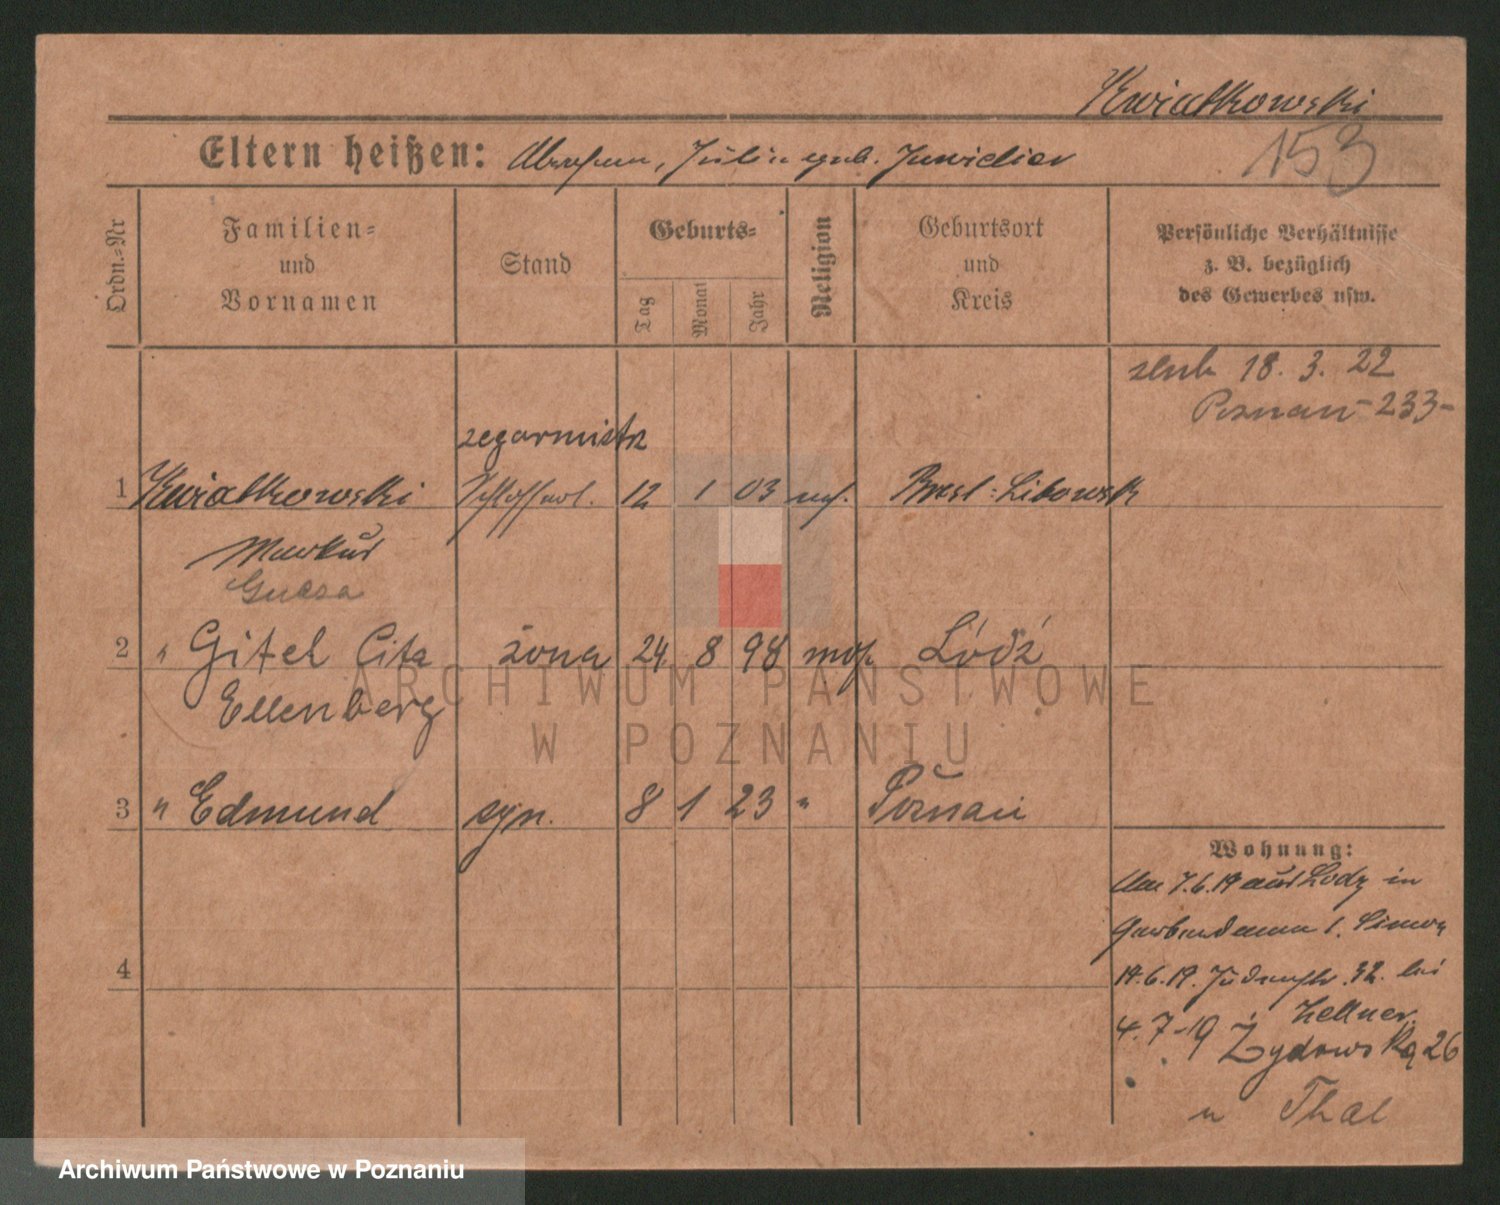 Kwiatkowski
153
Eltern heißen: Abraham, Julia geb.
Ordn.-Nr
Familien- und Vornamen
Stand
Geburts-
Tag
Monat
Jahr
Religion
Geburtsort und Kreis
Persönliche Verhältnisse
z. B. bezüglich
des Gewerbes usw.
ślub 18. 3. 22
Poznań -233-
zegarmistrz
1 Kwiatkowski Schlosserl. 12 1 03 mos. Brest-Litowsk
Markus
2 " Gitel Cita żona 24 8 98 mojż. Łódź
Ellenberg
3 " Edmund syn. 8 1 23 " Poznań
4
Wohnung:
7.6.19 aus Lodz in
1. Simon
14.6.19. Judenstr. 32. bei
Zellner.
4.7-19 Żydowska 26
u Thal
ARCHIWUM PAŃSTWOWE
W POZNANIU
Archiwum Państwowe w Poznaniu